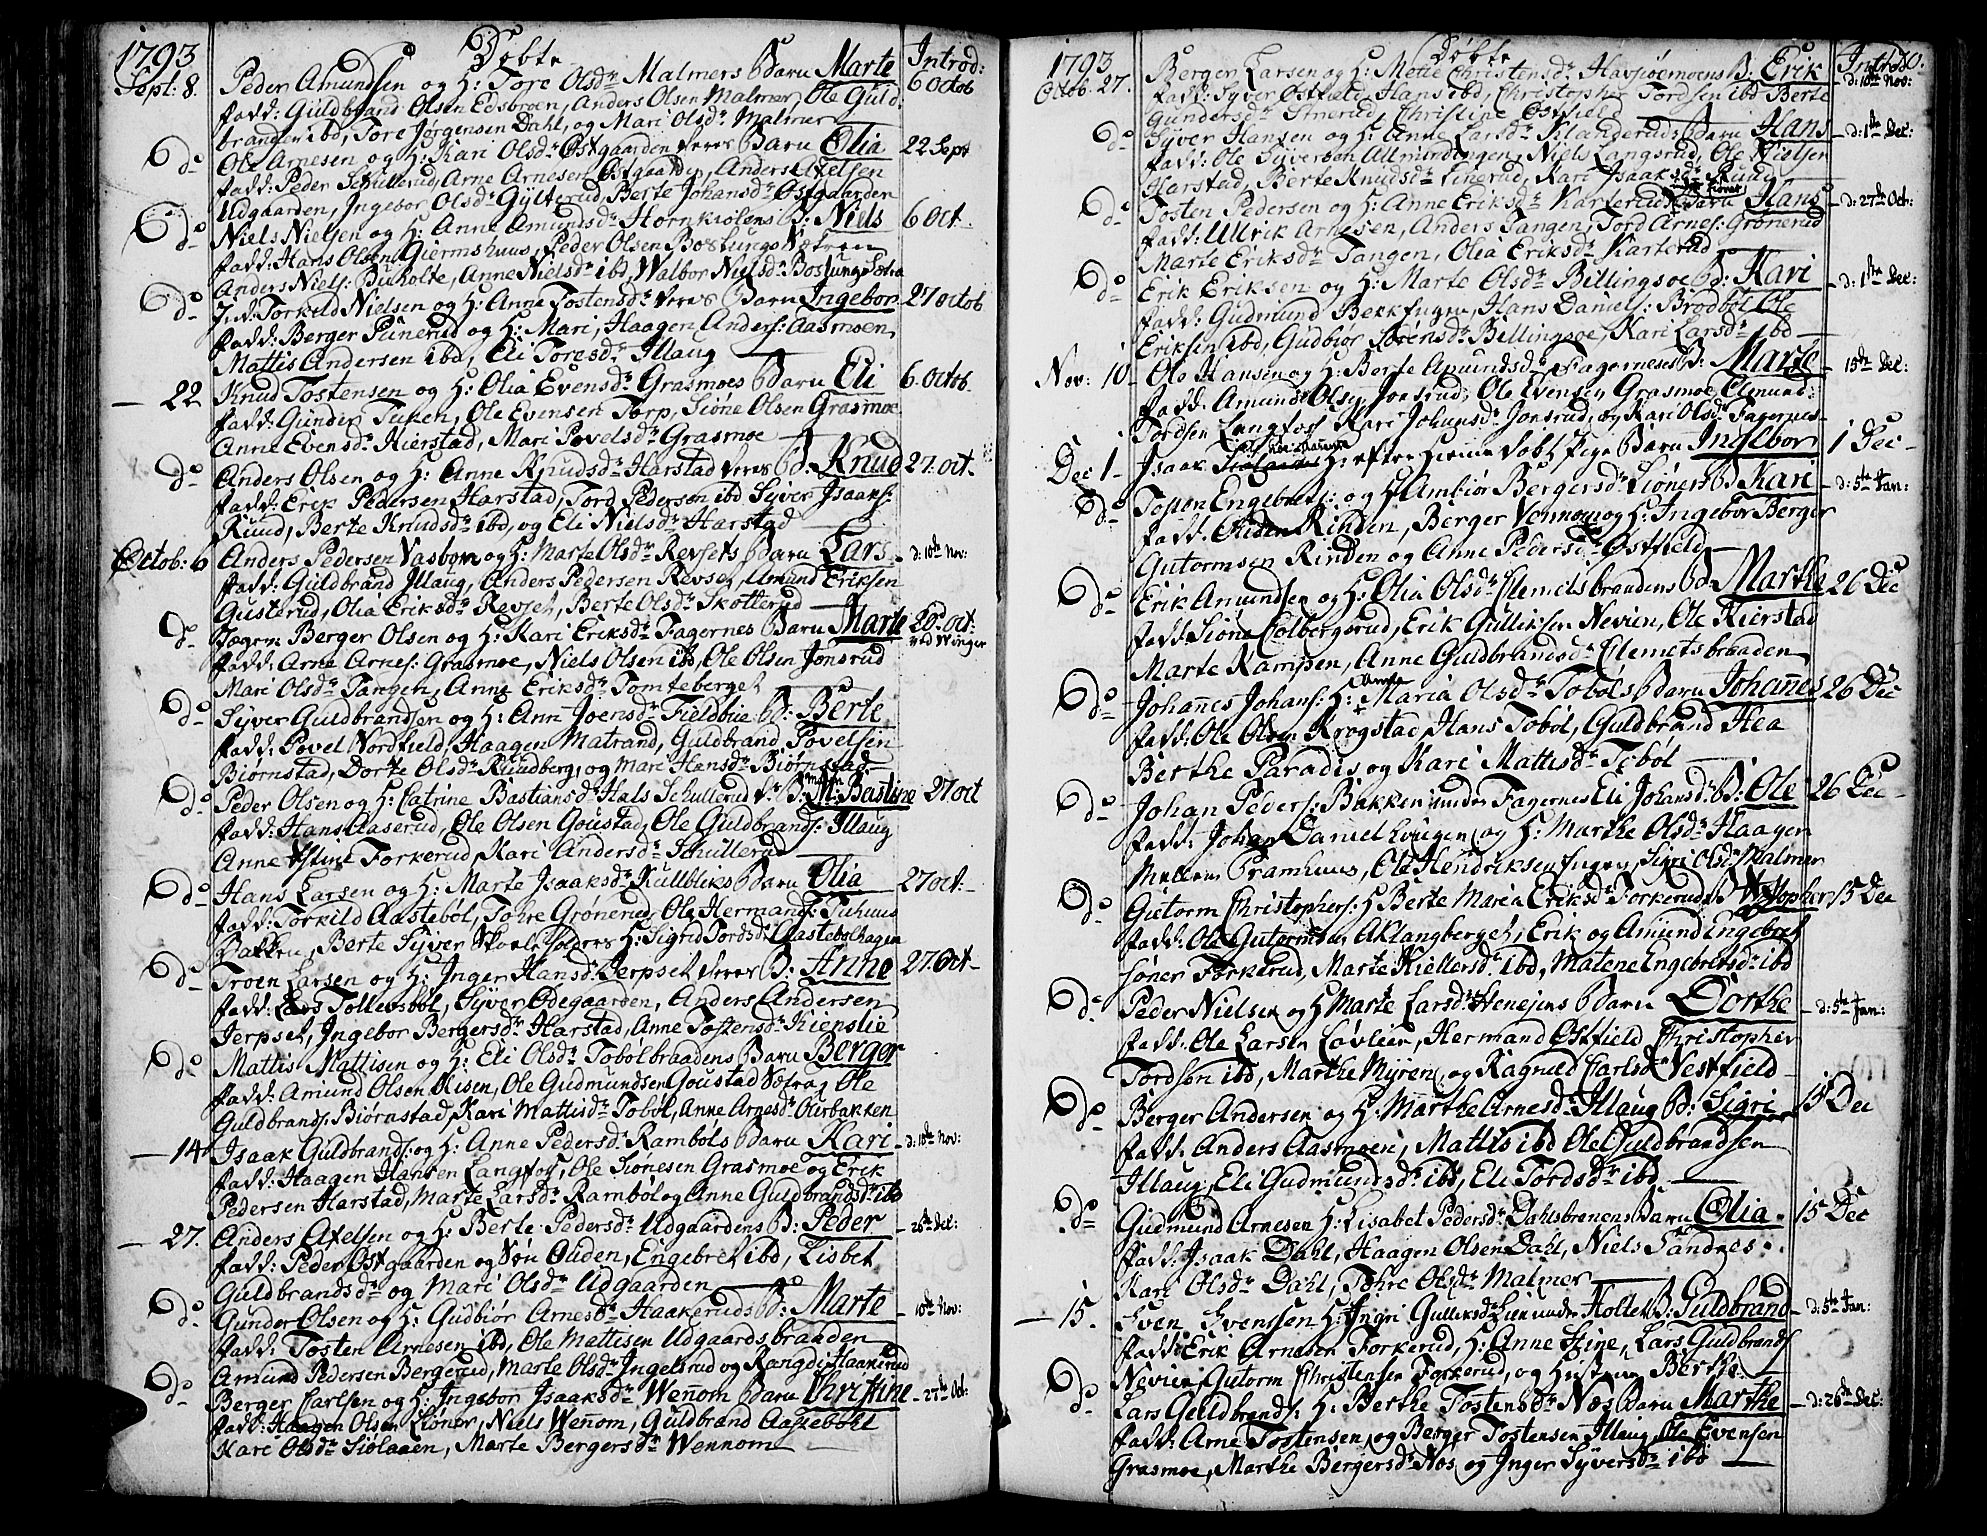 1793 Døbte Introd:
Sept: 8. Peder Amundsen og H: Tore Olsd. Malmers Barn Marte 6 Octob
fadd: Guldbrand Olsen Edsbroen, Anders Olsen Malmer, Ole Guld
branden ibd, Tore Jørgensen Dahl, og Mari Olsd. Malmer
do Ole Arnesen og H: Kari Olsd. Østgaarden deres Barn Olia 22 Sept
fadd: Peder Schullerud, Arne Arnesen Østgaarden, Anders Axelsen
Udgaarden, Ingebor Olsd. Gylterud, Berte Johansd. Østgaarden
do Niels Nielsen og H: Anne Amundsd. Hornkiølens B: Niels 6 Oct
fadd: Hans Olsen Giermshuus, Peder Olsen Bostungs Sætren
Anders Niels: Buholte, Anne Nielsd. ibd, Walbor Nielsd. Bostungs Sætra
do Torkild Nielsen og H: Anne Tostensd. deres Barn Ingebor 27 octob
fadd: Berger Punerud og H: Mari, Haagen Anders: Aasmoen
Mattis Andersen ibd, Eli Toresd. Illaug
— 22 Knud Tostensen og H: Olia Evensd. Grasmoes Barn Eli 6 Octob
fadd: Gunder Tuken, Ole Evensen Torp, Siøne Olsen Grasmoe
Anne Evensd. Kierstad, Mari Povelsd. Grasmoe
do Anders Olsen og H: Anne Knudsd. Harstad deres B: Knud 27. oct
fadd: Erik Pedersen Harstad, Tord Pedersen ibd Syver Isaaks:
Ruud, Berte Knudsd. ibd, og Eli Nielsd. Harstad
Octob: 6 Anders Pedersen Vasbom og H: Marte Olsd. Revsets Barn Lars d: 10de Nov:
fadd: Guldbrand Illaug, Anders Pedersen Revset, Amund Eriksen
Gusterud, Olia Eriksd. Revset, Berte Olsd. Skotterud
do Berger Olsen og H: Kari Eriksd. Fagernes Barn Marte 20. oct: ved Winger
fadd: Arne Arnes: Grasmoe, Niels Olsen ibd, Ole Olsen Jonsrud
Mari Olsd. Tangen, Anne Eriksd. Tomteberget
do Syver Guldbrandsen og H: Ann Joensd. Fieldbue B: Berte
fadd: Povel Nordfield, Haagen Matrand, Guldbrand Povelsen
Biørnstad, Dorte Olsd. Ruudberg, og Mari Hansd. Biørnstad
do Peder Olsen og H: Catrine Bastiansd. Hals Schullerud B: M: Bastine 27 oct
fadd: Hans Aaserud, Ole Olsen Goustad, Ole Guldbrands: Illaug
Anne Stine Torkerud, Kari Andersd. Schullerud
do Hans Larsen og H: Marte Isaaksd. Kullbliks Barn Olia 27 oct:
fadd: Torkild Aastebøl, Tohre Grønerud, Ole Hermands: Tuhuus
Bakken, Berte Syver Skoeleholders H: Sigrid Tordsd. Aastebølhagen
do Troen Larsen og H: Inger Hansd. Jerpset deres B: Anne 27. Oct
fadd: Lars Tollevsbøl, Syver Ødegaarden, Anders Andersen
Jerpset, Ingebor Bergersd. Harstad, Anne Tostensd. Kienslie
do Mattis Mattisen og H: Eli Olsd. Tobølbraadens Barn Berger
fadd: Amund Olsen Risen, Ole Gudmundsen Goustad Sætra, Ole
Guldbrands: Biørnstad, Kari Mattisd. Tobøl, Anne Arnesd. Olerbakken
— 14 Isaak Guldbrands: og H: Anne Pedersd. Rambøls Barn Kari d: 10de Nov:
fadd: Haagen Hansen Langfoss, Ole Siønesen Grasmoe og Erik
Pedersen Harstad, Marte Larsd. Rambøl og Anne Guldbrandsd. ibd
— 27. Anders Axelsen og H: Berte Pedersd. Udgaardens B: Peder 26de Dec:
fadd: Peder Østgaarden og Søn Ouden, Engebret ibd, Lisbet
Guldbrandsd. og Mari Olsd. Udgaarden
do Gunder Olsen og H: Gudbiør Arnesd. Haakeruds B: Marte 10de Nov:
fadd: Tosten Arnesen ibd, Ole Mattisen Udgaardsbraaden
Amund Pedersen Bergerud, Marte Olsd. Ingelsrud og Rangdi Haakerud
do Berger Carlsen og H: Ingebor Isaaksd. Wennom Barn Christine 27de Oct:
fadd: Haagen Olsen Lioner, Niels Wennom, Guldbrand Aastebøhl
Kari Olsd. Siølaaen, Marte Bergersd. Wennom
1793 Døbte Introd: 70.
Octob: 27. Berger Larsen og H: Mette Christensd. Havsiøemoens B. Erik d: 10de Nov:
fadd: Syver Østfield, Hans ibd, Christopher Tordsen ibd Berte
Gundersd. Stnerud, Christine Østfield
do Syver Hansen og H: Anne Larsd. Klanderuds Barn Hans d: 1ste Dec:
fadd: Ole Syversen Allmindingen, Niels Langsrud, Ole Nielsen
Harstad, Berte Knudsd. Linerud, Kari Isaaksd. Ruud
do Tosten Pedersen og H: Anne Eriksd. Karterud Barn Hans d: 27de Oct:
fadd: Ulrik Arnesen, Anders Tangen, Tord Arnes: Grønerud
Marte Eriksd. Tangen, Olia Eriksd. Karterud
do Erik Eriksen og H: Marte Olsd. Billingsoe B: Kari d: 1ste Dec:
fadd: Gudmund Bekkfugen, Hans Daniels: Brødbøl Ole
Eriksen ibd, Gudbiør Sørensd. Billingsoe, Kari Larsd. ibd
Nov: 10 Ole Hansen og H: Berte Amundsd. Fagerneses B: Marte 15de Dec:
fadd: Amund Olsen Jonsrud, Ole Evensen Grasmoe, Clemund:
Tordsen Langfoss Kari Johansd. Jonsrud, og Kari Olsd. Fagernes
Dec 1 Isaak H: efter Hiemme døbt Pige Barn Ingebor 1 Dec
do Tosten Engebrets: og H: Ambiør Bergersd. Lioners B Kari d: 5te Jan:
fadd: Ouden Rinden, Berger Vennom og H: Ingebor Berger
Gutormsen Rinden og Anne Pedersd. Østfield
do Erik Amundsen og H: Olia Olsd. Clemetsbraadens B. Marthe 26 Dec
fadd: Siøne Colbergsrud, Erik Gulliksen Nevien, Ole Kierstad
Marte Kampen, Anne Guldbrandsd. Clemetsbraaden
do Johanes Johans: H: Anne Maria Olsd. Tobøls Barn Johanes 26 Dec
fadd: Ole Olsen Krogstad, Hans Tobøl, Guldbrand Hea
Berthe Paradis og Kari Mattisd. Tobøl
do Johan Peders: Bakken under Fagernes Eli Johansd. B: Ole 26 Dec
fadd: Johan Daniel Evugen og H: Marthe Olsd. Haagen
Mellem Pramhuus, Ole Hendriksen fugen, Sigri Olsd. Malmer
do Gutorm Christophers: H Berte Maria Eriksd. Torkerud B Xstopher 15 Dec
fadd: Ole Gutormsen Aklangberget, Erik og Amund Engebret
søner Torkerud, Marte Kiellersd. ibd, Matene Engebretsd. ibd
do Peder Nielsen og H Marte Larsd. Henejens Barn Dorthe d: 5te Jan:
fadd: Ole Larsen Løvlien, Hermand Østfield Christopher
Tordsen ibd, Marthe Myren, og Ragnild Carlsd. Vestfield
do Berger Andersen og H: Marthe Arnesd. Illaug B: Sigri 15 Dec
fadd: Anders Aasmoen, Mattis ibd Ole Guldbrandsen
Illaug, Eli Gudmundsd. ibd, Eli Tordsd. ibd.
do Gudmund Arnesen H: Lisabet Pedersd. Dahlsbrenens Barn Olia 15 Dec
fadd: Isaak Dahl, Haagen Olsen Dahl, Niels Sandnes
Kari Olsd. Dahl, Tohre Olsd. Malmer
— 15. Sven Svenssen H: Ingri Gulliksd. Lien under Holte B: Guldbrand d: 5te Jan:
fadd: Erik Arnesen Torkerud, H: Anne Stine, Lars Guldbrands
Nevien, Gutorm Christensen Torkerud, og Hustrue Berthe
do Lars Guldbrands: H: Berthe Tostensd. Næs Barn Marthe d: 26de Dec:
fadd: Arne Tostensen og Berger Tostensen Illaug, Ole Evensen
Grasmoe, Marthe Bergersd. Nos og Inger Syversd. ibd